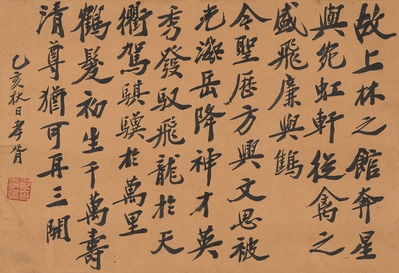 故上林之館奔星
與宛虹軒從禽之
盛飛廉與鵲
令聖歷方興文思被
光海岳降神才英
秀發馭飛龍於天
衢駕騏驥於萬里
鶴髮初生千萬壽
清尊猶可再三開
乙亥秋日孝胥